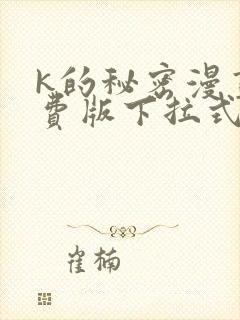 K的秘密漫
费版下拉式
崔楠